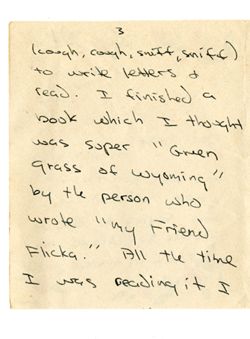 3
(cough, cough, sniff, sniff)
to write letters &
read. I finished a
book which I thought
was super "Green
Grass of Wyoming"
by the person who
wrote "My Friend
Flicka." All the time
I was reading it I